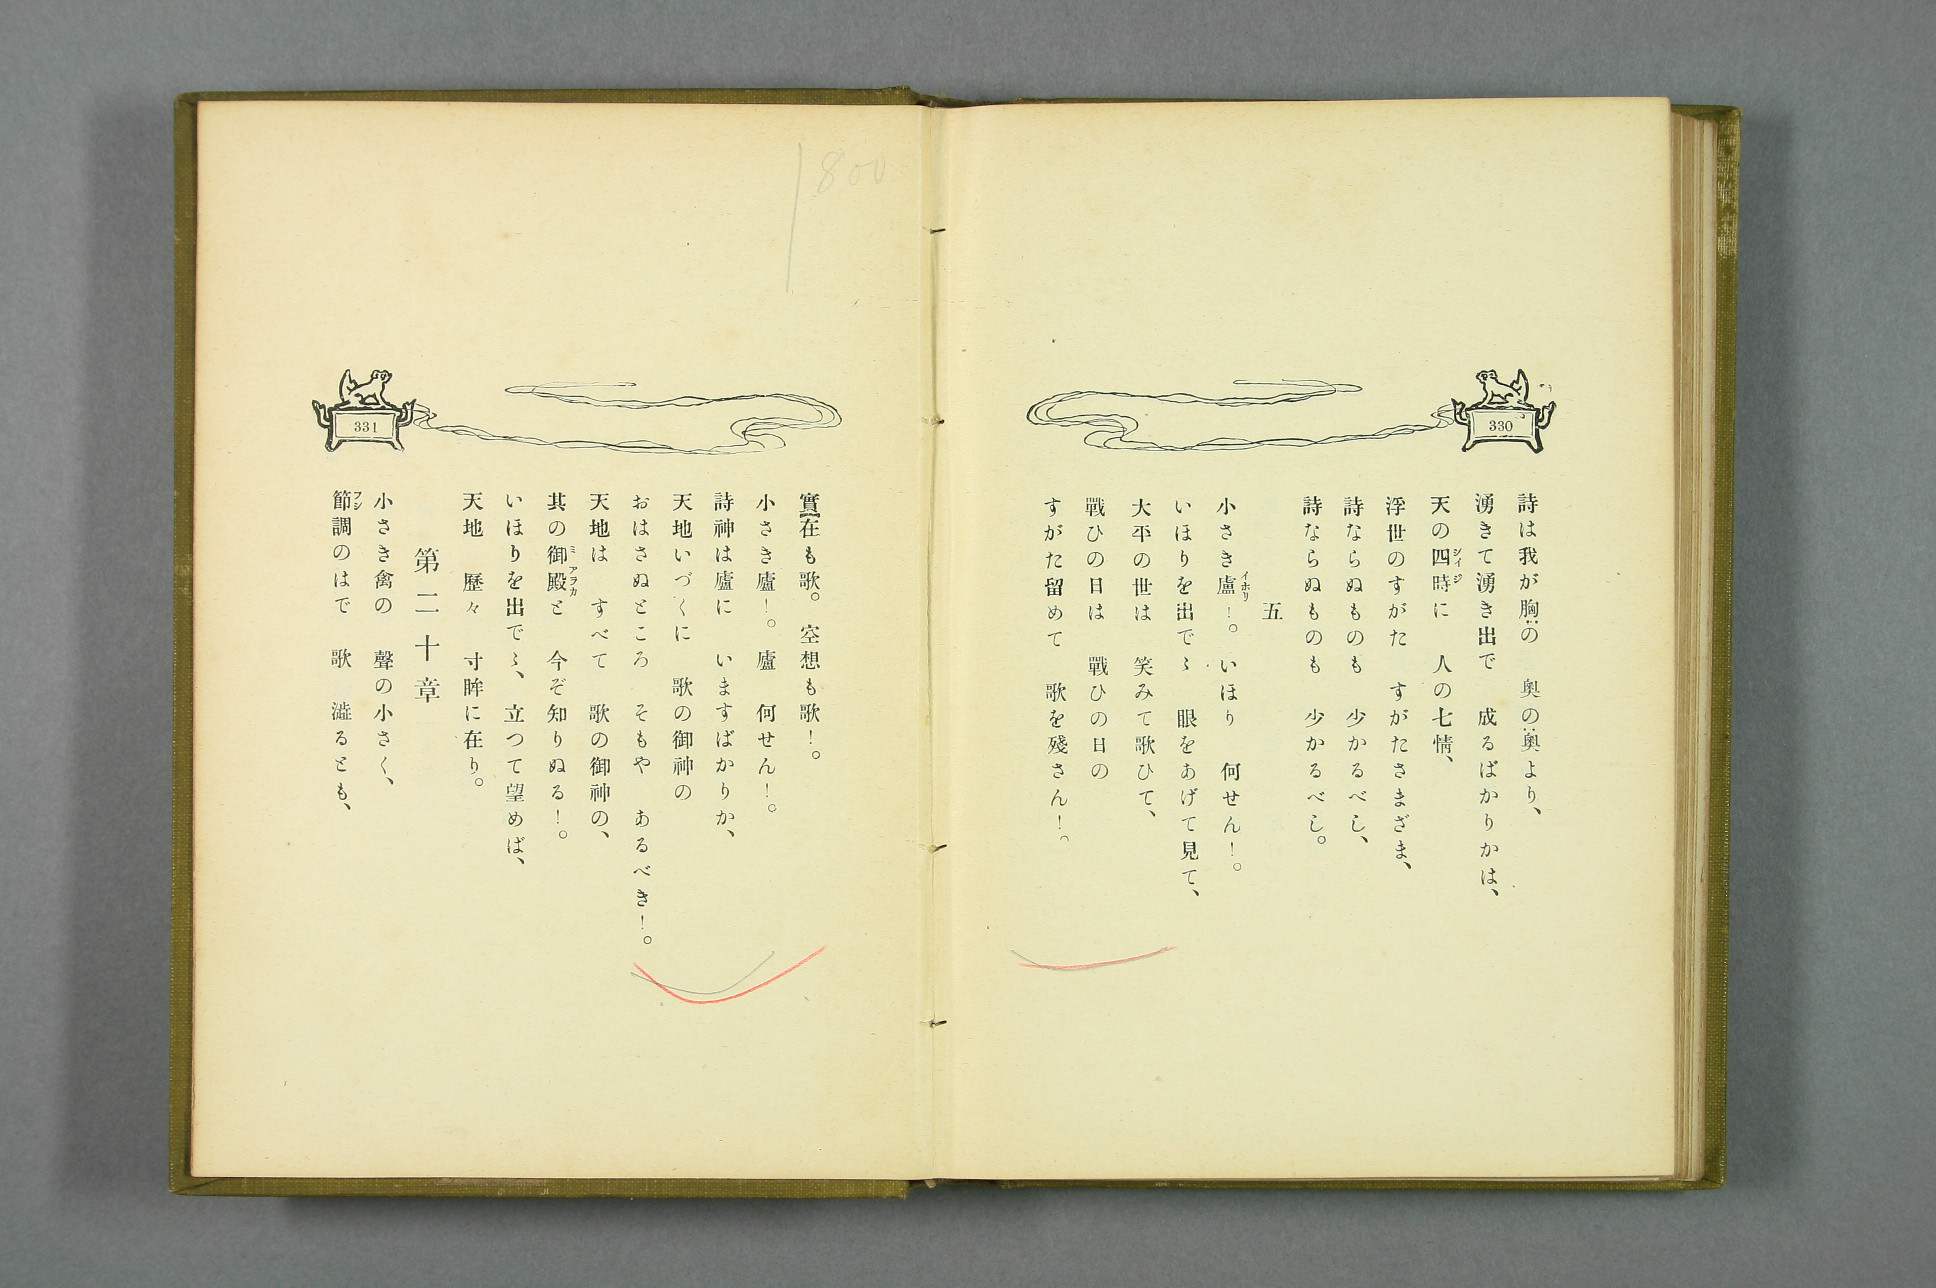 330
詩は我が胸の　奥の奥より、
湧きて湧き出で　成るばかりかは、
天の四時に　人の七情、
シイジ
浮世のすがた　すがたさまざま、
詩ならぬものも　少かるべし、
詩ならぬものも　少かるべし。
五
小さき廬！。いほり　何せん！。
イホリ
いほりを出でゝ　眼をあげて見て、
大平の世は　笑みて歌ひて、
戰ひの日は　戰ひの日の
すがた留めて　歌を殘さん！。
1800
331
實在も歌。空想も歌！。
小さき廬！。廬　何せん！。
詩神は廬に　いますばかりか、
天地いづくに　歌の御神の
おはさぬところ　そもや　あるべき！。
天地は　すべて　歌の御神の、
其の御殿と　今ぞ知りぬる！。
ミアラカ
いほりを出でゝ、立つて望めば、
天地　歷々　寸眸に在り。
第二十章
小さき禽の　聲の小さく、
節調のはで　歌　澁るとも、
フシ